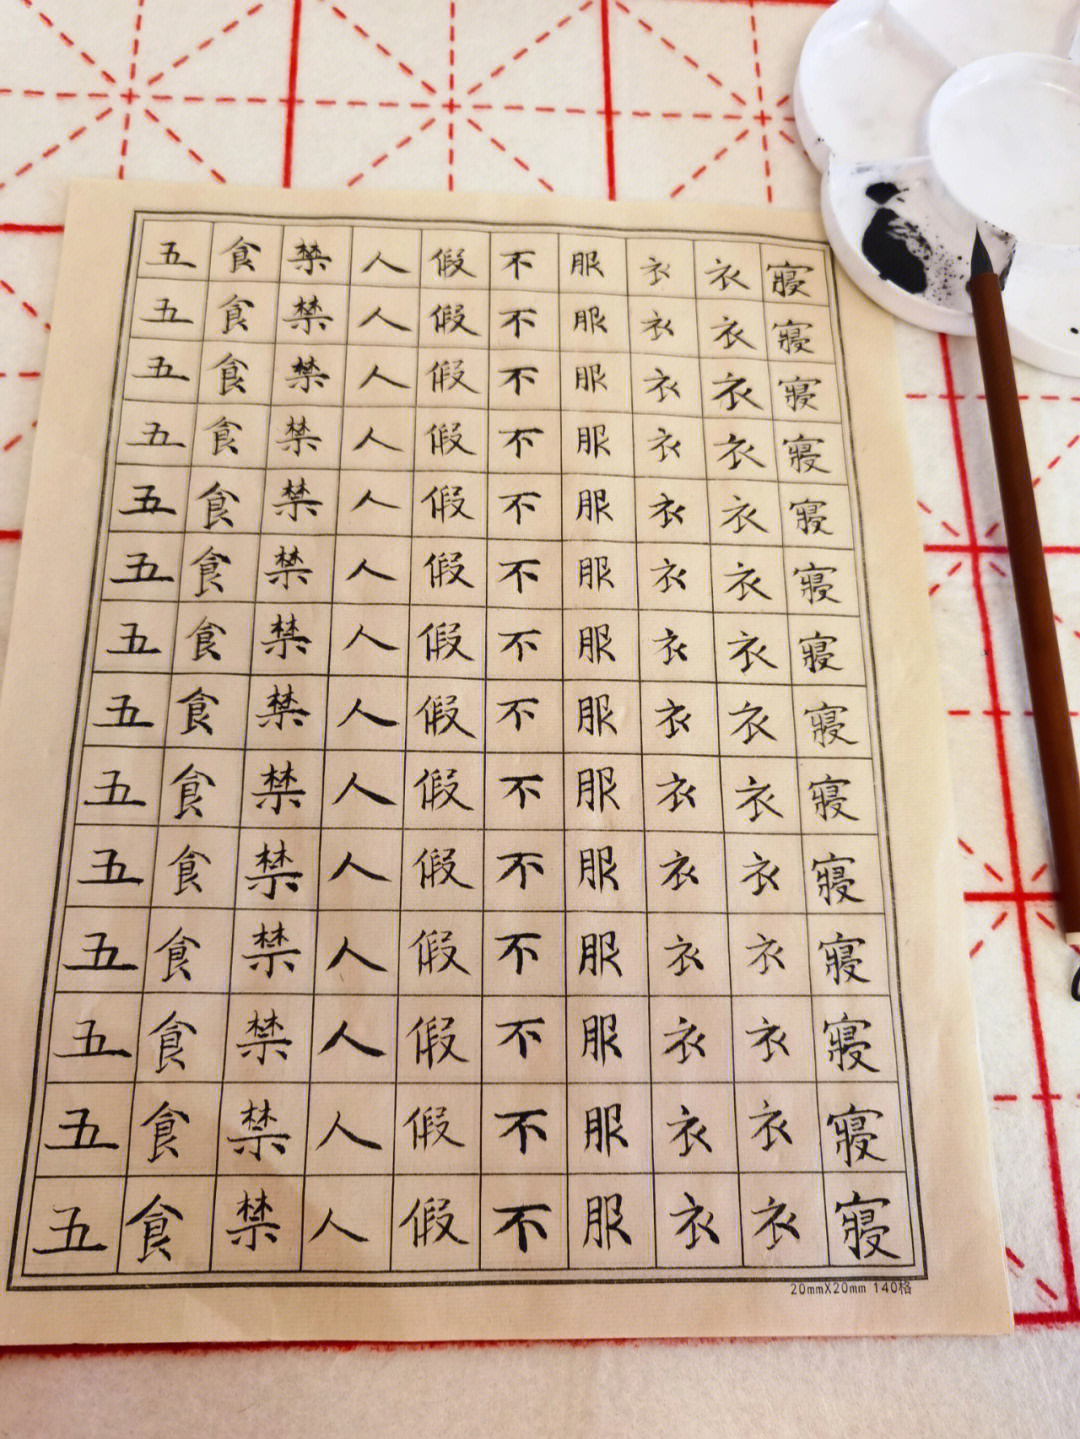 寢寢寢寢寢寢寢寢寢寢寢寢寢寢
衣衣衣衣衣衣衣衣衣衣衣衣衣衣
衣衣衣衣衣衣衣衣衣衣衣衣衣衣
服服服服服服服服服服服服服服
不不不不不不不不不不不不不不
假假假假假假假假假假假假假假
人人人人人人人人人人人人人人
禁禁禁禁禁禁禁禁禁禁禁禁禁禁
食食食食食食食食食食食食食食
五五五五五五五五五五五五五五
20mmX20mm 140格